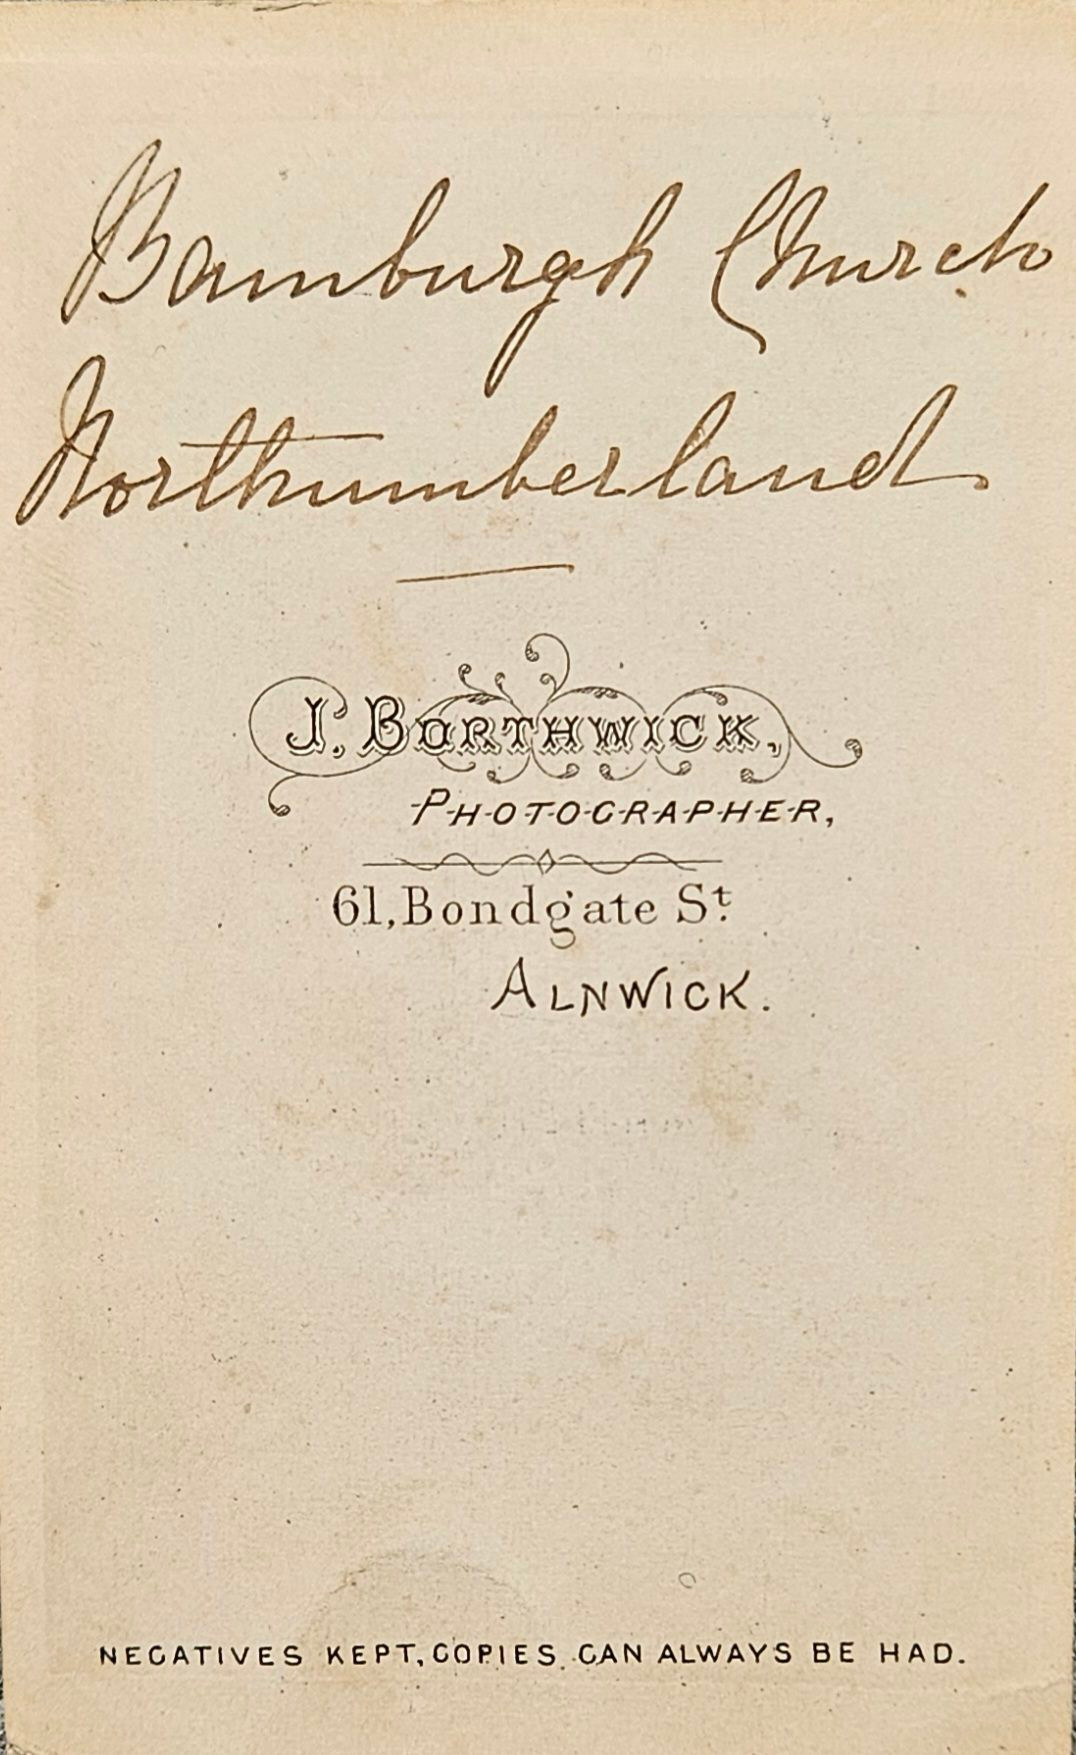 Bamburgh Church
Northumberland
J. BORTHWICK,
PHOTOGRAPHER,
61, Bondgate St.
ALNWICK.
NEGATIVES KEPT, COPIES CAN ALWAYS BE HAD.